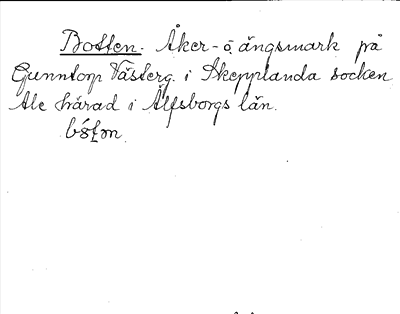 Botten. Åker- o. ängsmark på
Gunntorp Västerg. i Skepplanda socken
Ale härad i Älfsborgs län.